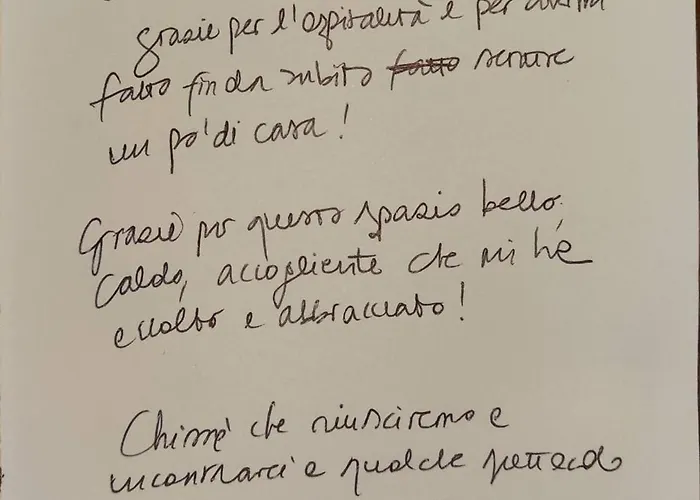 grazie per l'ospitalità e per avermi
fatto fin da subito fatto sentire
un po' di casa!
Grazie per questo spazio bello,
caldo, accogliente che mi ha
accolto e abbracciato!
Chissà che riusciremo a
incontrarci a qualche spettacolo